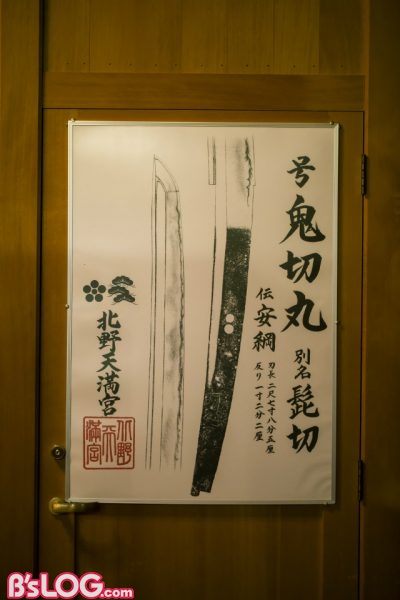 号 鬼切丸 別名 髭切
伝 安綱
刃長 二尺七寸八分五厘
反り 一寸二分二厘
北野天満宮
北野天満宮
B'sLOG.com